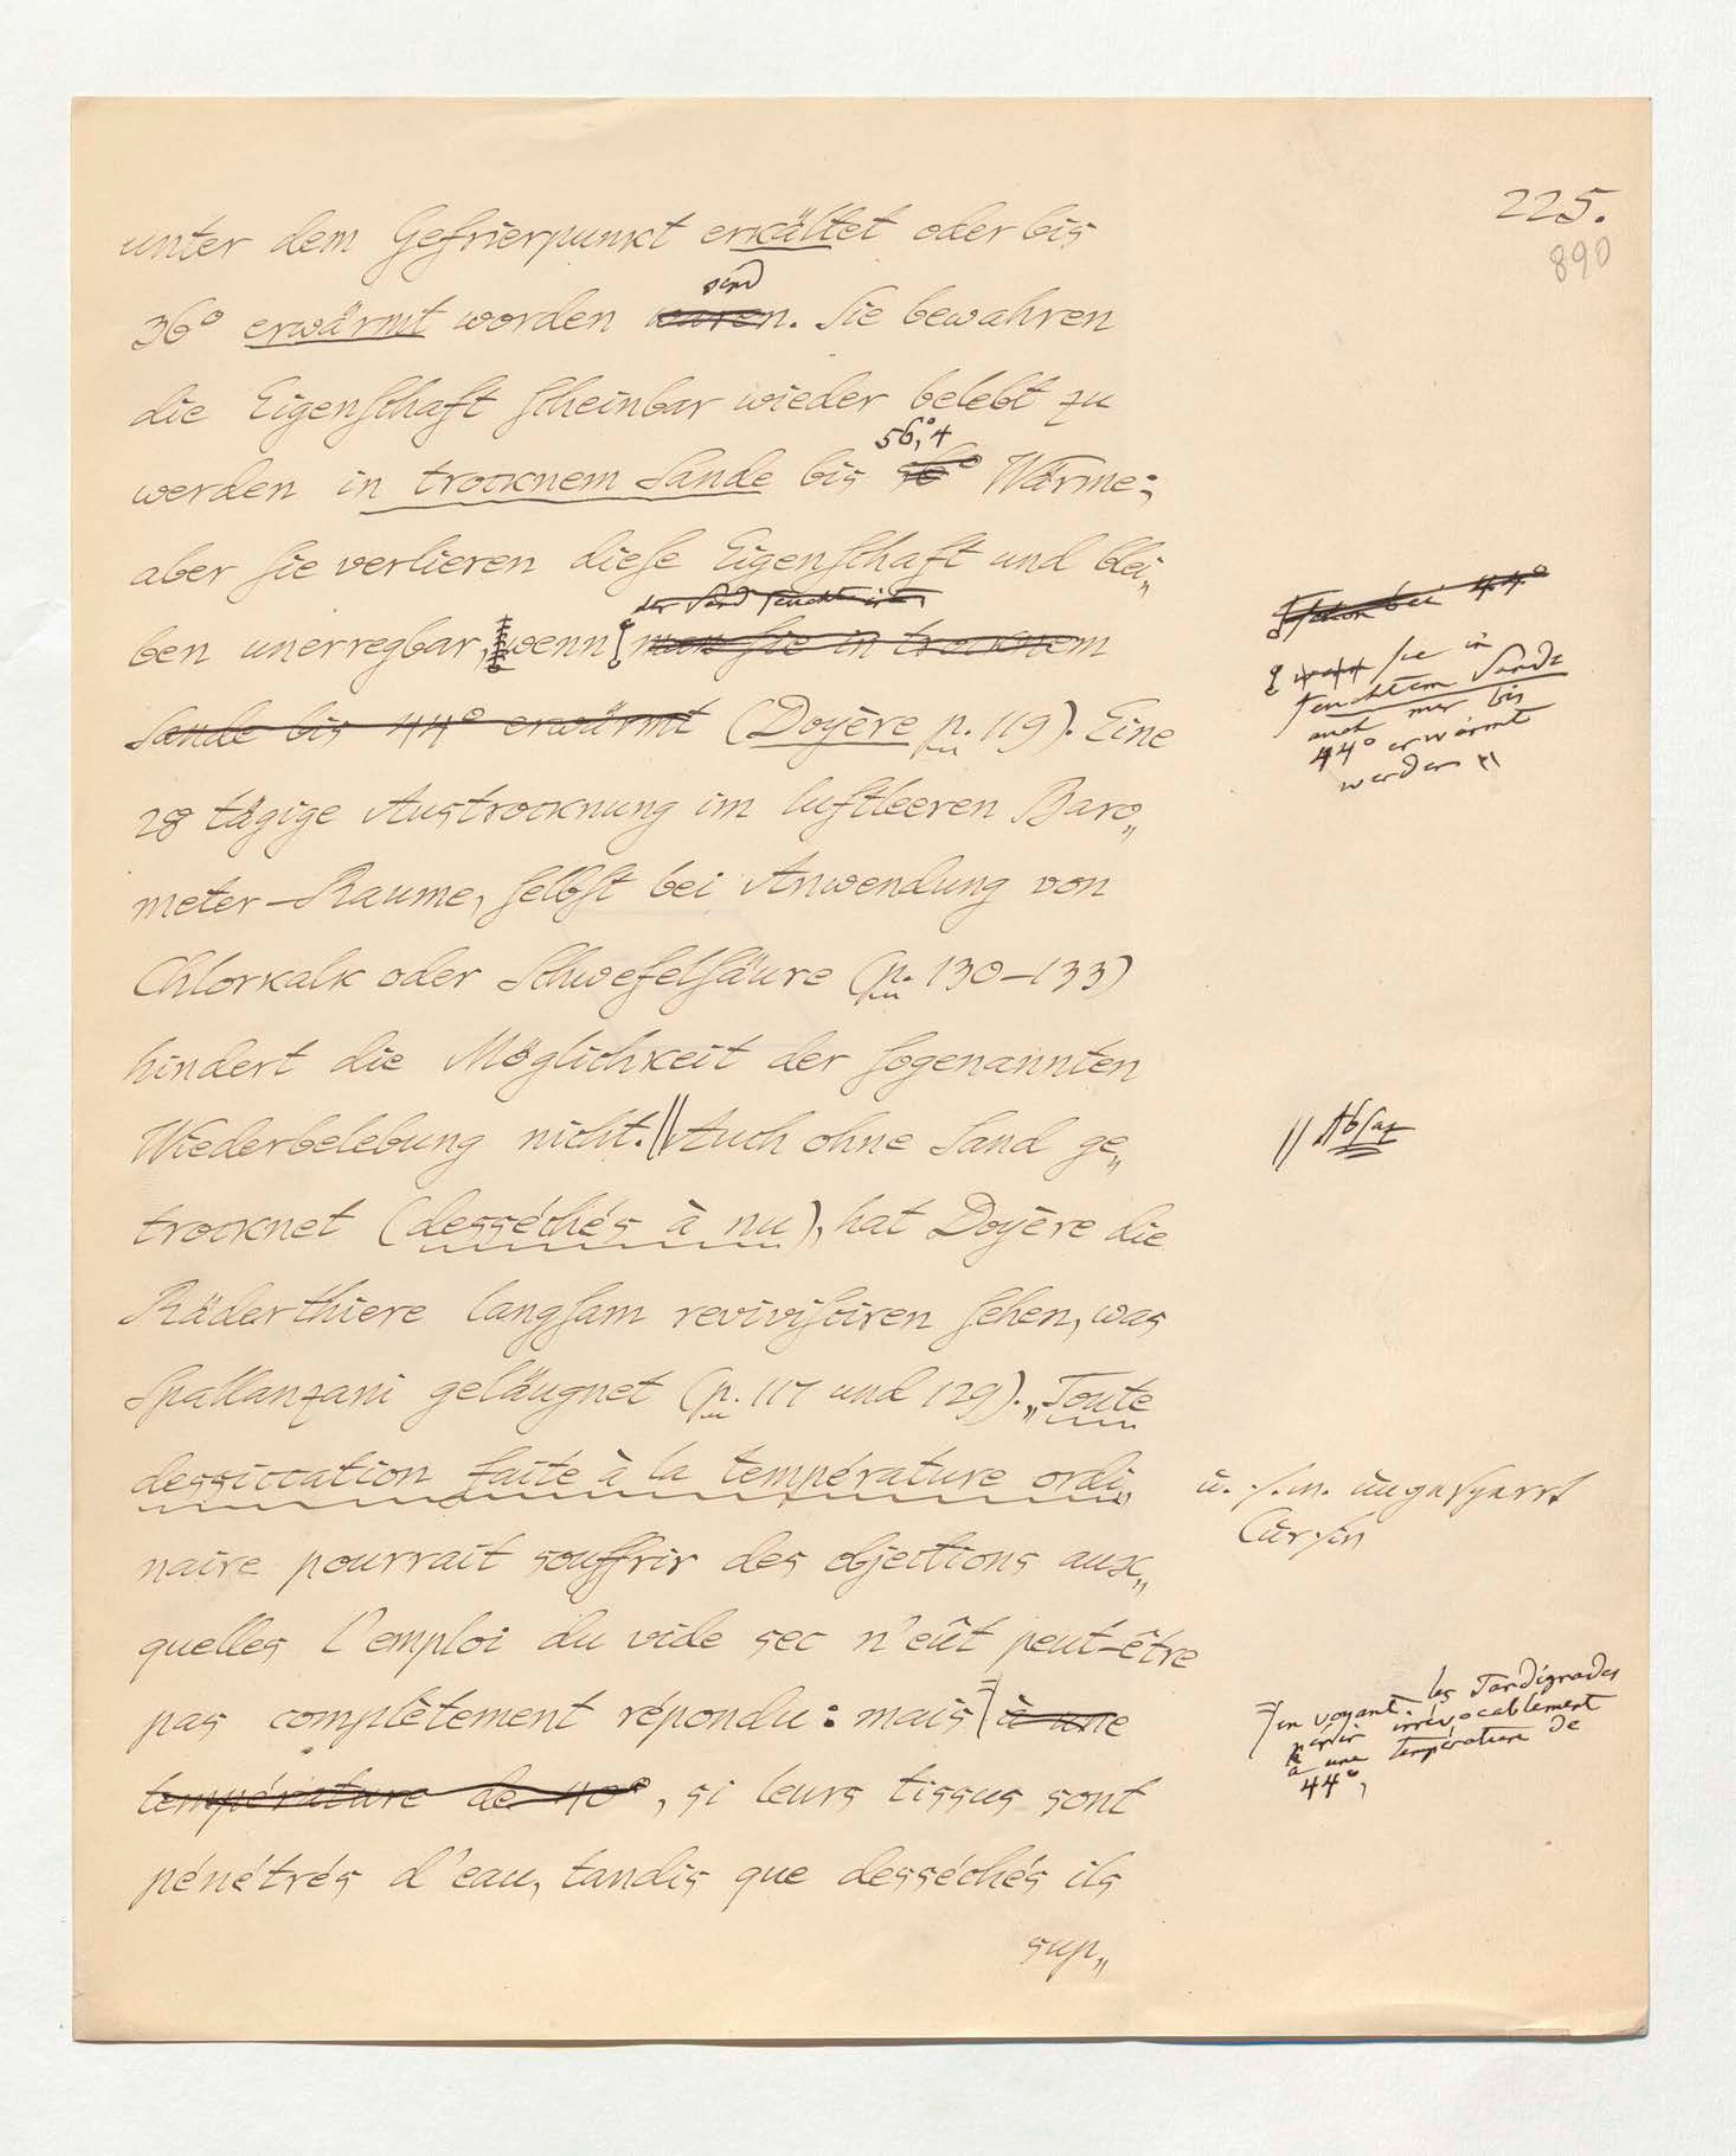 225.
890
unter dem Gefrierpunkt erkältet oder bis
sind
36° erwärmt worden waren. Sie bewahren
die Eigenschaft scheinbar wieder belebt zu
56,°4
werden in trocknem Sande bis 56° Wärme;
aber sie verlieren diese Eigenschaft und blei„
der Sand feucht ist
ben unerregbar, wenn man sie in trocknem
Sande bis 44° erwärmt (Doyère p. 119). Eine
schon bei 44°
sie in
feuchtem Sande
auch nur bis
44° erwärmt
werden
28 tägige Austrocknung im luftleeren Baro„
meter-Raume, selbst bei Anwendung von
Chlorkalk oder Schwefelsäure (p. 130–133)
hindert die Möglichkeit der sogenannten
Wiederbelebung nicht. || Auch ohne Sand ge„
|| Absaz
trocknet (desséchés à nu), hat Doyère die
Räderthiere langsam revivisciren sehen, was
Spallanzani geläugnet (p. 117 und 129). „Toute
dessiccation faite à la température ordi„
u. s. w. ungesperrt
Cursiv
naire pourrait souffrir des objections aux„
quelles l'emploi du vide sec n'eût peut-être
pas complètement répondu: mais à une
en voyant les Tardigrades
périr irrévocablement
à une température de
44°,
température de 40°, si leurs tissus sont
pénétrés d'eau, tandis que desséchés ils
sup„